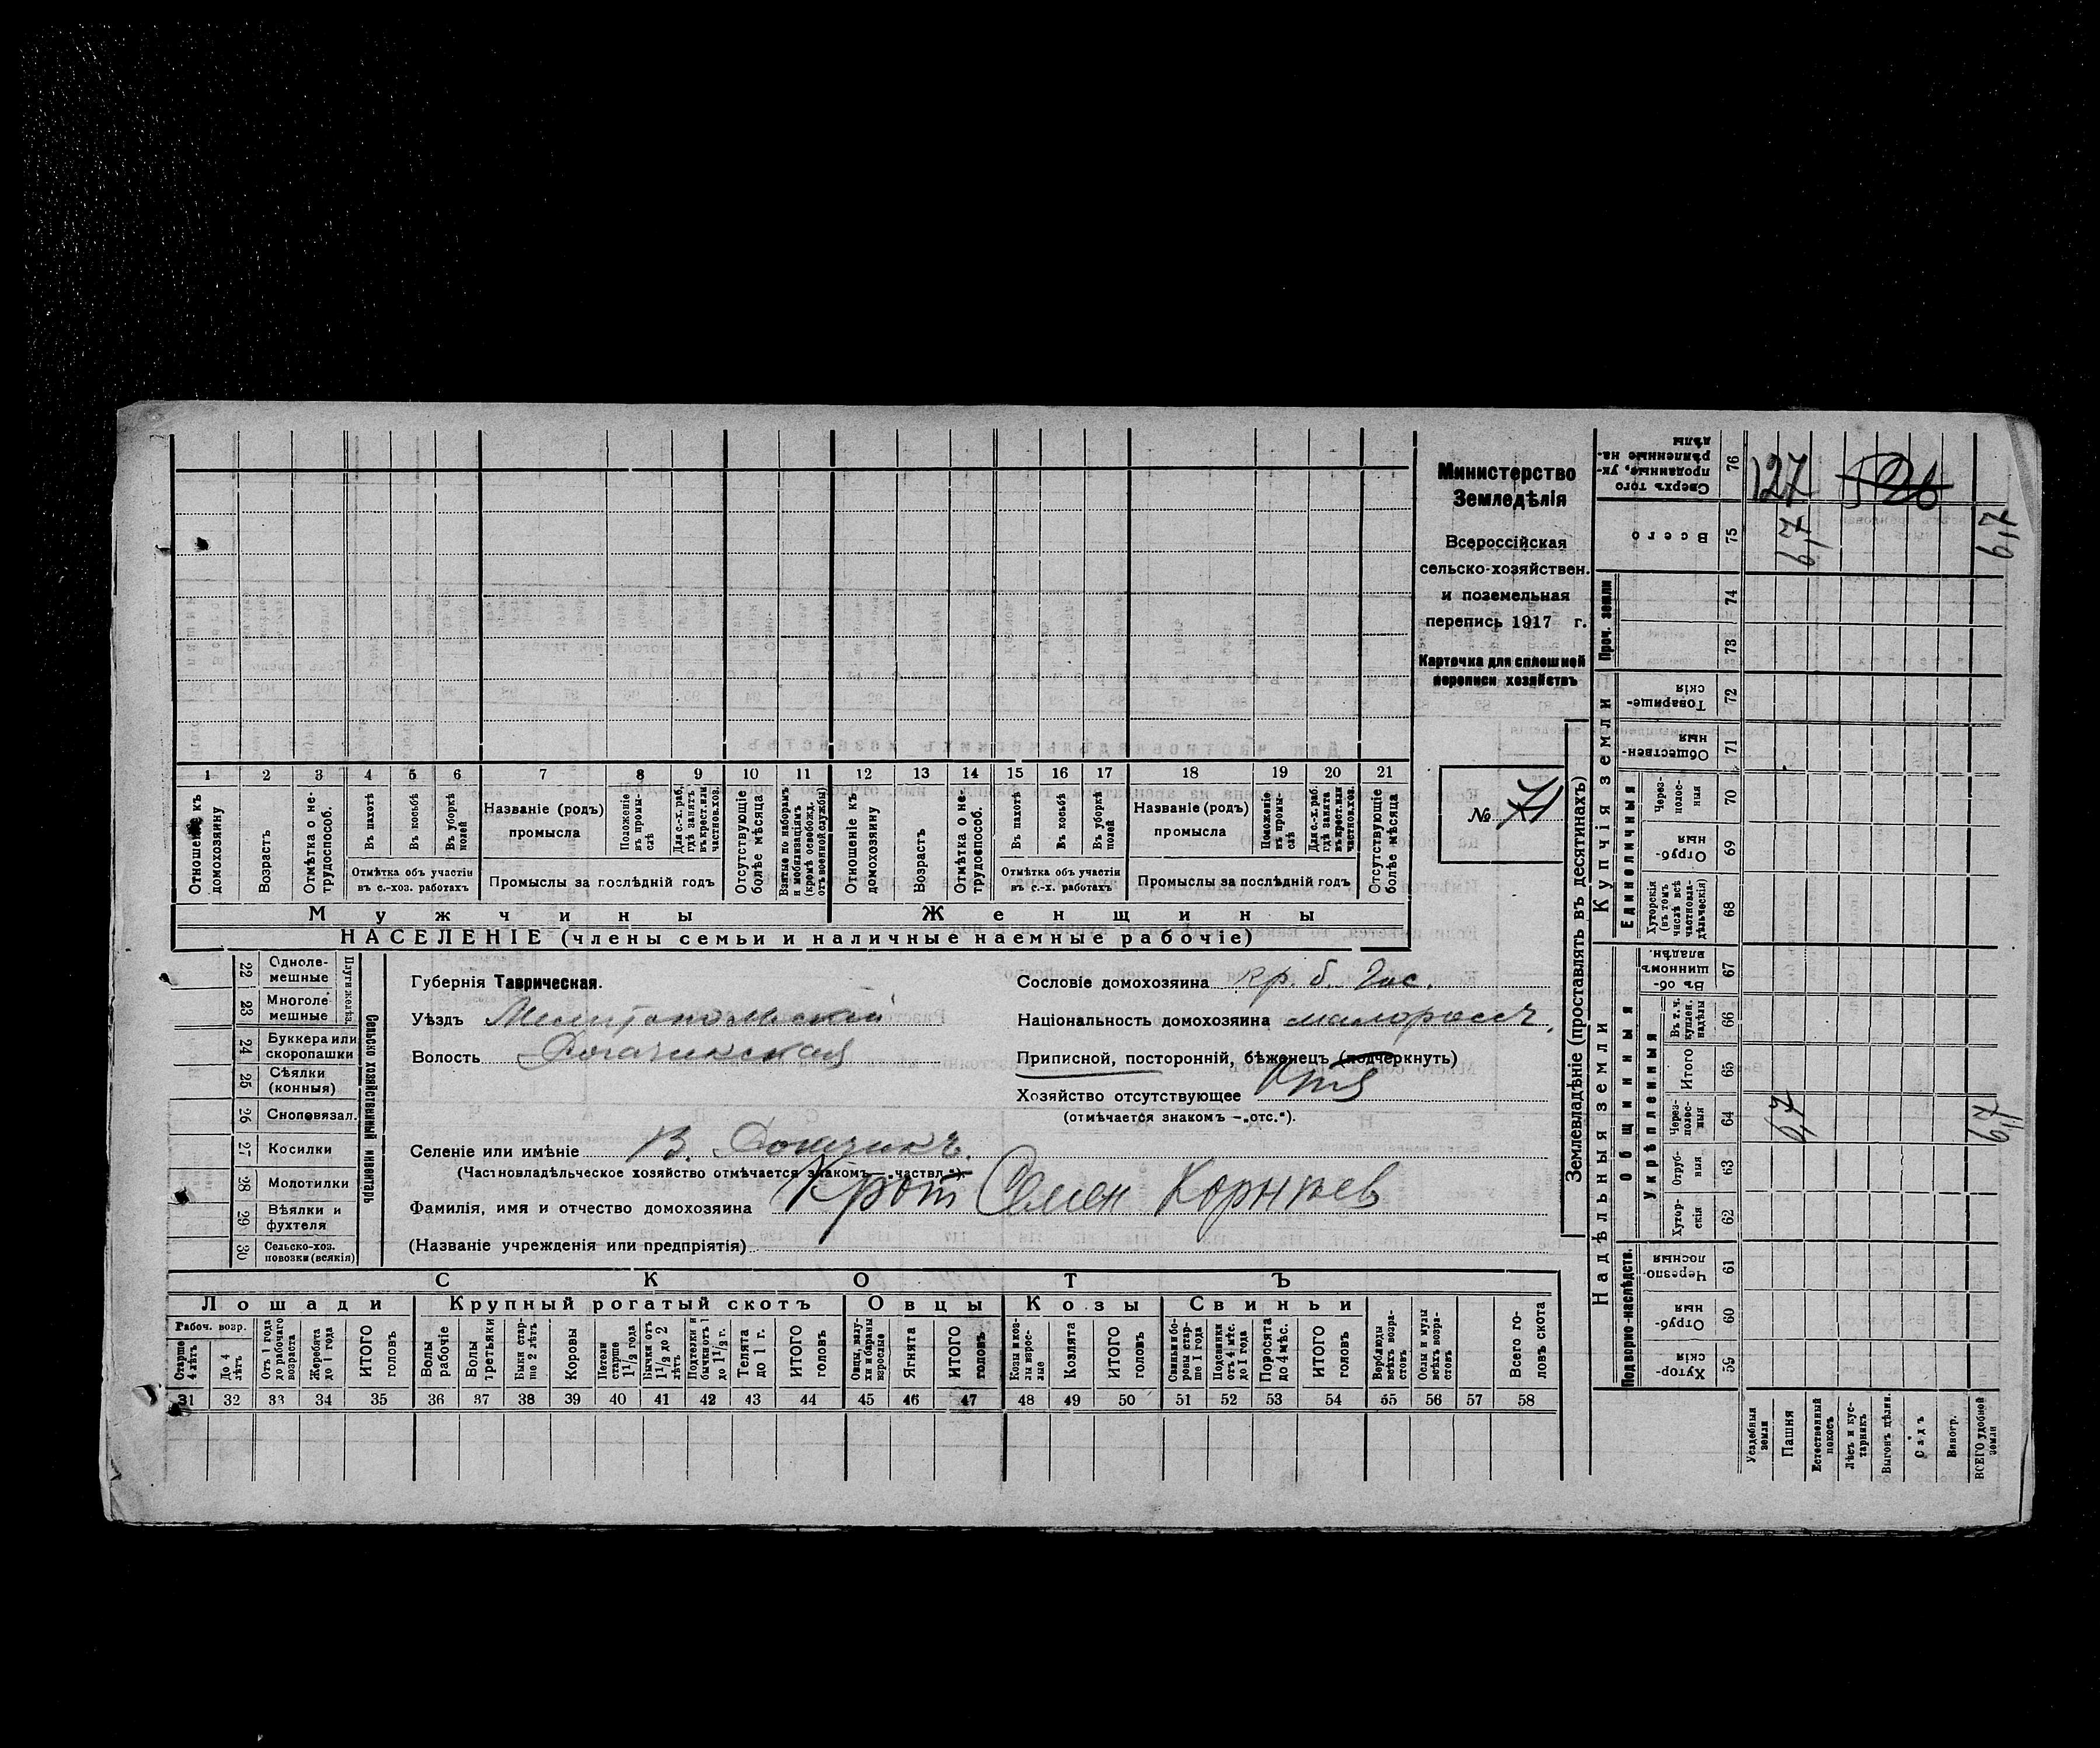 Министерство
Земледѣлія
Всероссійская
сельско-хозяйствен.
и поземельная
перепись 1917 г.
Карточка для сплошной
переписи хозяйствъ
№ 71
1 2 3 4 5 6 7 8 9 10 11 12 13 14 15 16 17 18 19 20 21
Отношеніе къ домохозяину
Возрастъ
Отмѣтка о не-трудоспособ.
Въ пахотѣ
Въ косьбѣ
Въ уборкѣ полей
Отмѣтка объ участіи
въ с.-хоз. работахъ
Названіе (родъ)
промысла
Положеніе въ промы-слѣ
Для с.-х. раб. гдѣ занятъ въ крест. или частнов. хоз.
Промыслы за послѣдній годъ
Отсутствующіе болѣе мѣсяца
Взятые по наборамъ и мобилизаціямъ (кромѣ освобожд. отъ военной службы)
Отношеніе къ домохозяину
Возрастъ
Отмѣтка о не-трудоспособ.
Въ пахотѣ
Въ косьбѣ
Въ уборкѣ полей
Отмѣтка объ участіи
въ с.-х. работахъ
Названіе (родъ)
промысла
Положеніе въ промы-слѣ
Для с.-х. раб. гдѣ занята въ крест. или частнов. хоз.
Промыслы за послѣдній годъ
Отсутствующіе болѣе мѣсяца
Мужчины
Женщины
НАСЕЛЕНІЕ (члены семьи и наличные наемные рабочіе)
22 Одноле-мешные
23 Многоле мешные
Плуги желѣз.
24 Буккера или скоропашки
25 Сѣялки (конныя)
26 Сноповязал.
27 Косилки
28 Молотилки
29 Вѣялки и фухтеля
30 Сельско-хоз. повозки (всякія)
Сельско хозяйственный инвентарь
Губернія Таврическая.
Уѣздъ Мелитопольскій
Волость Рогачикская
Сословіе домохозяина кр. б. гос.
Національность домохозяина малороссъ.
Приписной, посторонній, бѣженецъ (подчеркнуть)
Хозяйство отсутствующее
(отмѣчается знакомъ —„отс.“).
Селеніе или имѣніе В. Рогачикъ.
(Частновладѣльческое хозяйство отмѣчается знакомъ „частвл.“).
Фамилія, имя и отчество домохозяина Крот Семен Корнѣев
(Названіе учрежденія или предпріятія)
СКОТЪ
Лошади
Крупный рогатый скотъ
Овцы
Козы
Свиньи
Рабоч. возр.
Старше 4 лѣтъ
До 4 лѣтъ
Отъ 1 года до рабочаго возраста
Жеребята до 1 года
ИТОГО головъ
Волы рабочіе
Волы третьяки
Быки стар-ше 2 лѣтъ
Коровы
Нетели старше 1 1/2 года
Бычки отъ 1 1/2 до 2 лѣтъ
Подтелки и бычки отъ 1 до 1 1/2 г.
Телята до 1 г.
ИТОГО головъ
Овцы, валу-хи и бараны взрослые
Ягнята
ИТОГО головъ
Козы и коз-лы взрос-лые
Козлята
ИТОГО головъ
Свиньи и бо-ровы стар-ше 1 года
Подсвинки отъ 4 мѣс. до 1 года
Поросята до 4 мѣс.
ИТОГО головъ
Верблюды всѣхъ возра-стовъ
Ослы и мулы всѣхъ возра-стовъ
Всего го-ловъ скота
31 32 33 34 35 36 37 38 39 40 41 42 43 44 45 46 47 48 49 50 51 52 53 54 55 56 57 58
Землевладѣніе (проставлять въ десятинахъ)
Надѣльныя земли
Купчія земли
Проч. земли
Подворно-наслѣдств.
Общинныя
Укрѣпленныя
Единоличныя
59 Хутор-скія
60 Отруб-ныя
61 Черезпо-лосныя
62 Хутор-скія
63 Отруб-ныя
64 Через-полос-ныя 6,7 6,7
65 Итого
66 Въ т. ч. куплен. надѣлы
67 Въ об-щинномъ владѣн.
68 Хуторскія (въ томъ числѣ всѣ частновла-дѣльческія)
69 Отруб-ныя
70 Через-полос-ныя
71 Обществен-ныя
72 Товарище-скія
73
74
75 Всего 6,7 6,7
76 Сверхъ того проданные, ук-рѣпленные на-дѣлы
127
Усадебныя земли
Пашня
Естественный покосъ
Лѣсъ и кус-тарникъ
Выгонъ цѣлин.
Садъ
Виногр.
ВСЕГО удобной земли